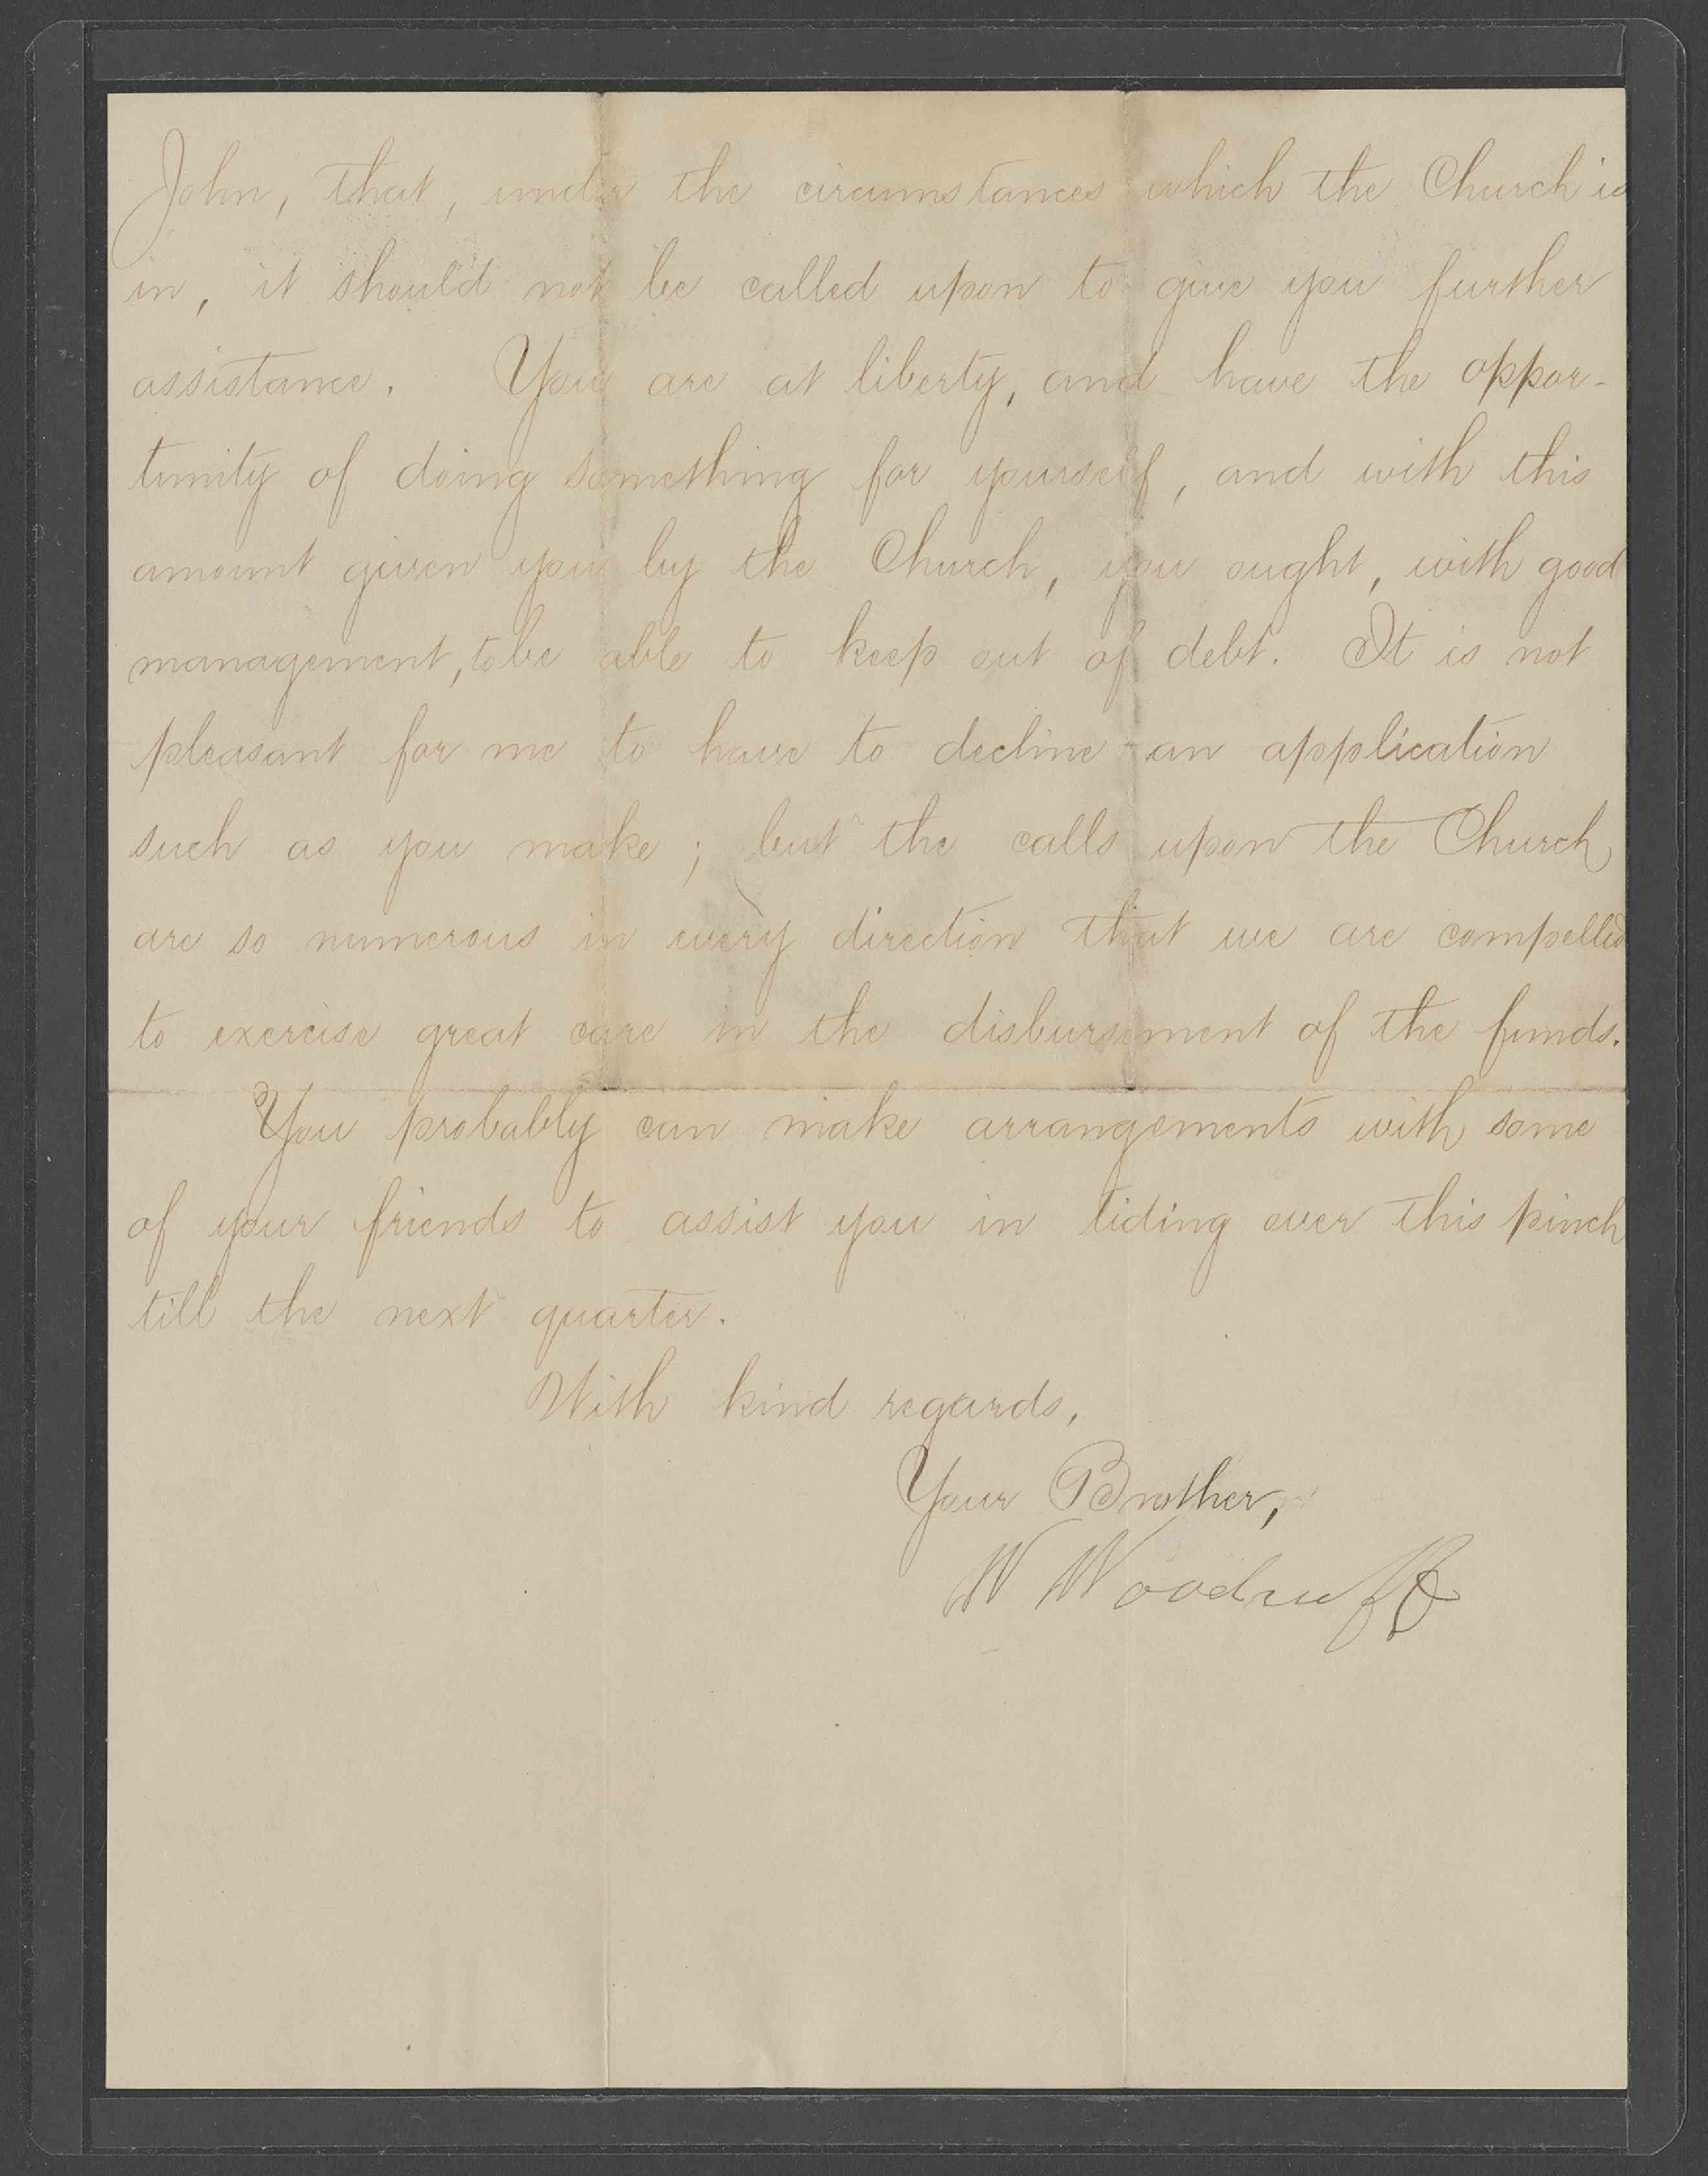 John, that, under the circumstances which the Church is
in, it should not be called upon to give you further
assistance. You are at liberty, and have the oppor-
tunity of doing something for yourself, and with this
amount given you by the Church, you ought, with good
management, to be able to keep out of debt. It is not
pleasant for me to have to decline an application
such as you make; but the calls upon the Church
are so numerous in every direction that we are compelled
to exercise great care in the disbursement of the funds.
You probably can make arrangements with some
of your friends to assist you in tiding over this pinch
till the next quarter.
With kind regards,
Your Brother,
W Woodruff